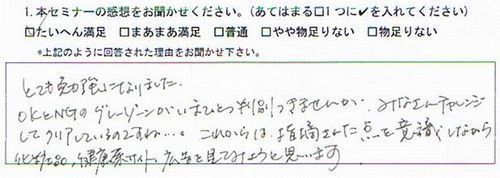 1. 本セミナーの感想をお聞かせください。(あてはまる□1つに✔を入れてください)
□たいへん満足 □まあまあ満足 □普通 □やや物足りない □物足りない
*上記のように回答された理由をお聞かせ下さい。
とても勉強になりました。
OKとNGのグレーゾーンがいまひとつ判別つきませんが、みなさんチャレンジ
してクリアしているのですね…。これからは、指摘された点を意識しながら
化粧品、健康系サイト、広告を見てみようと思います